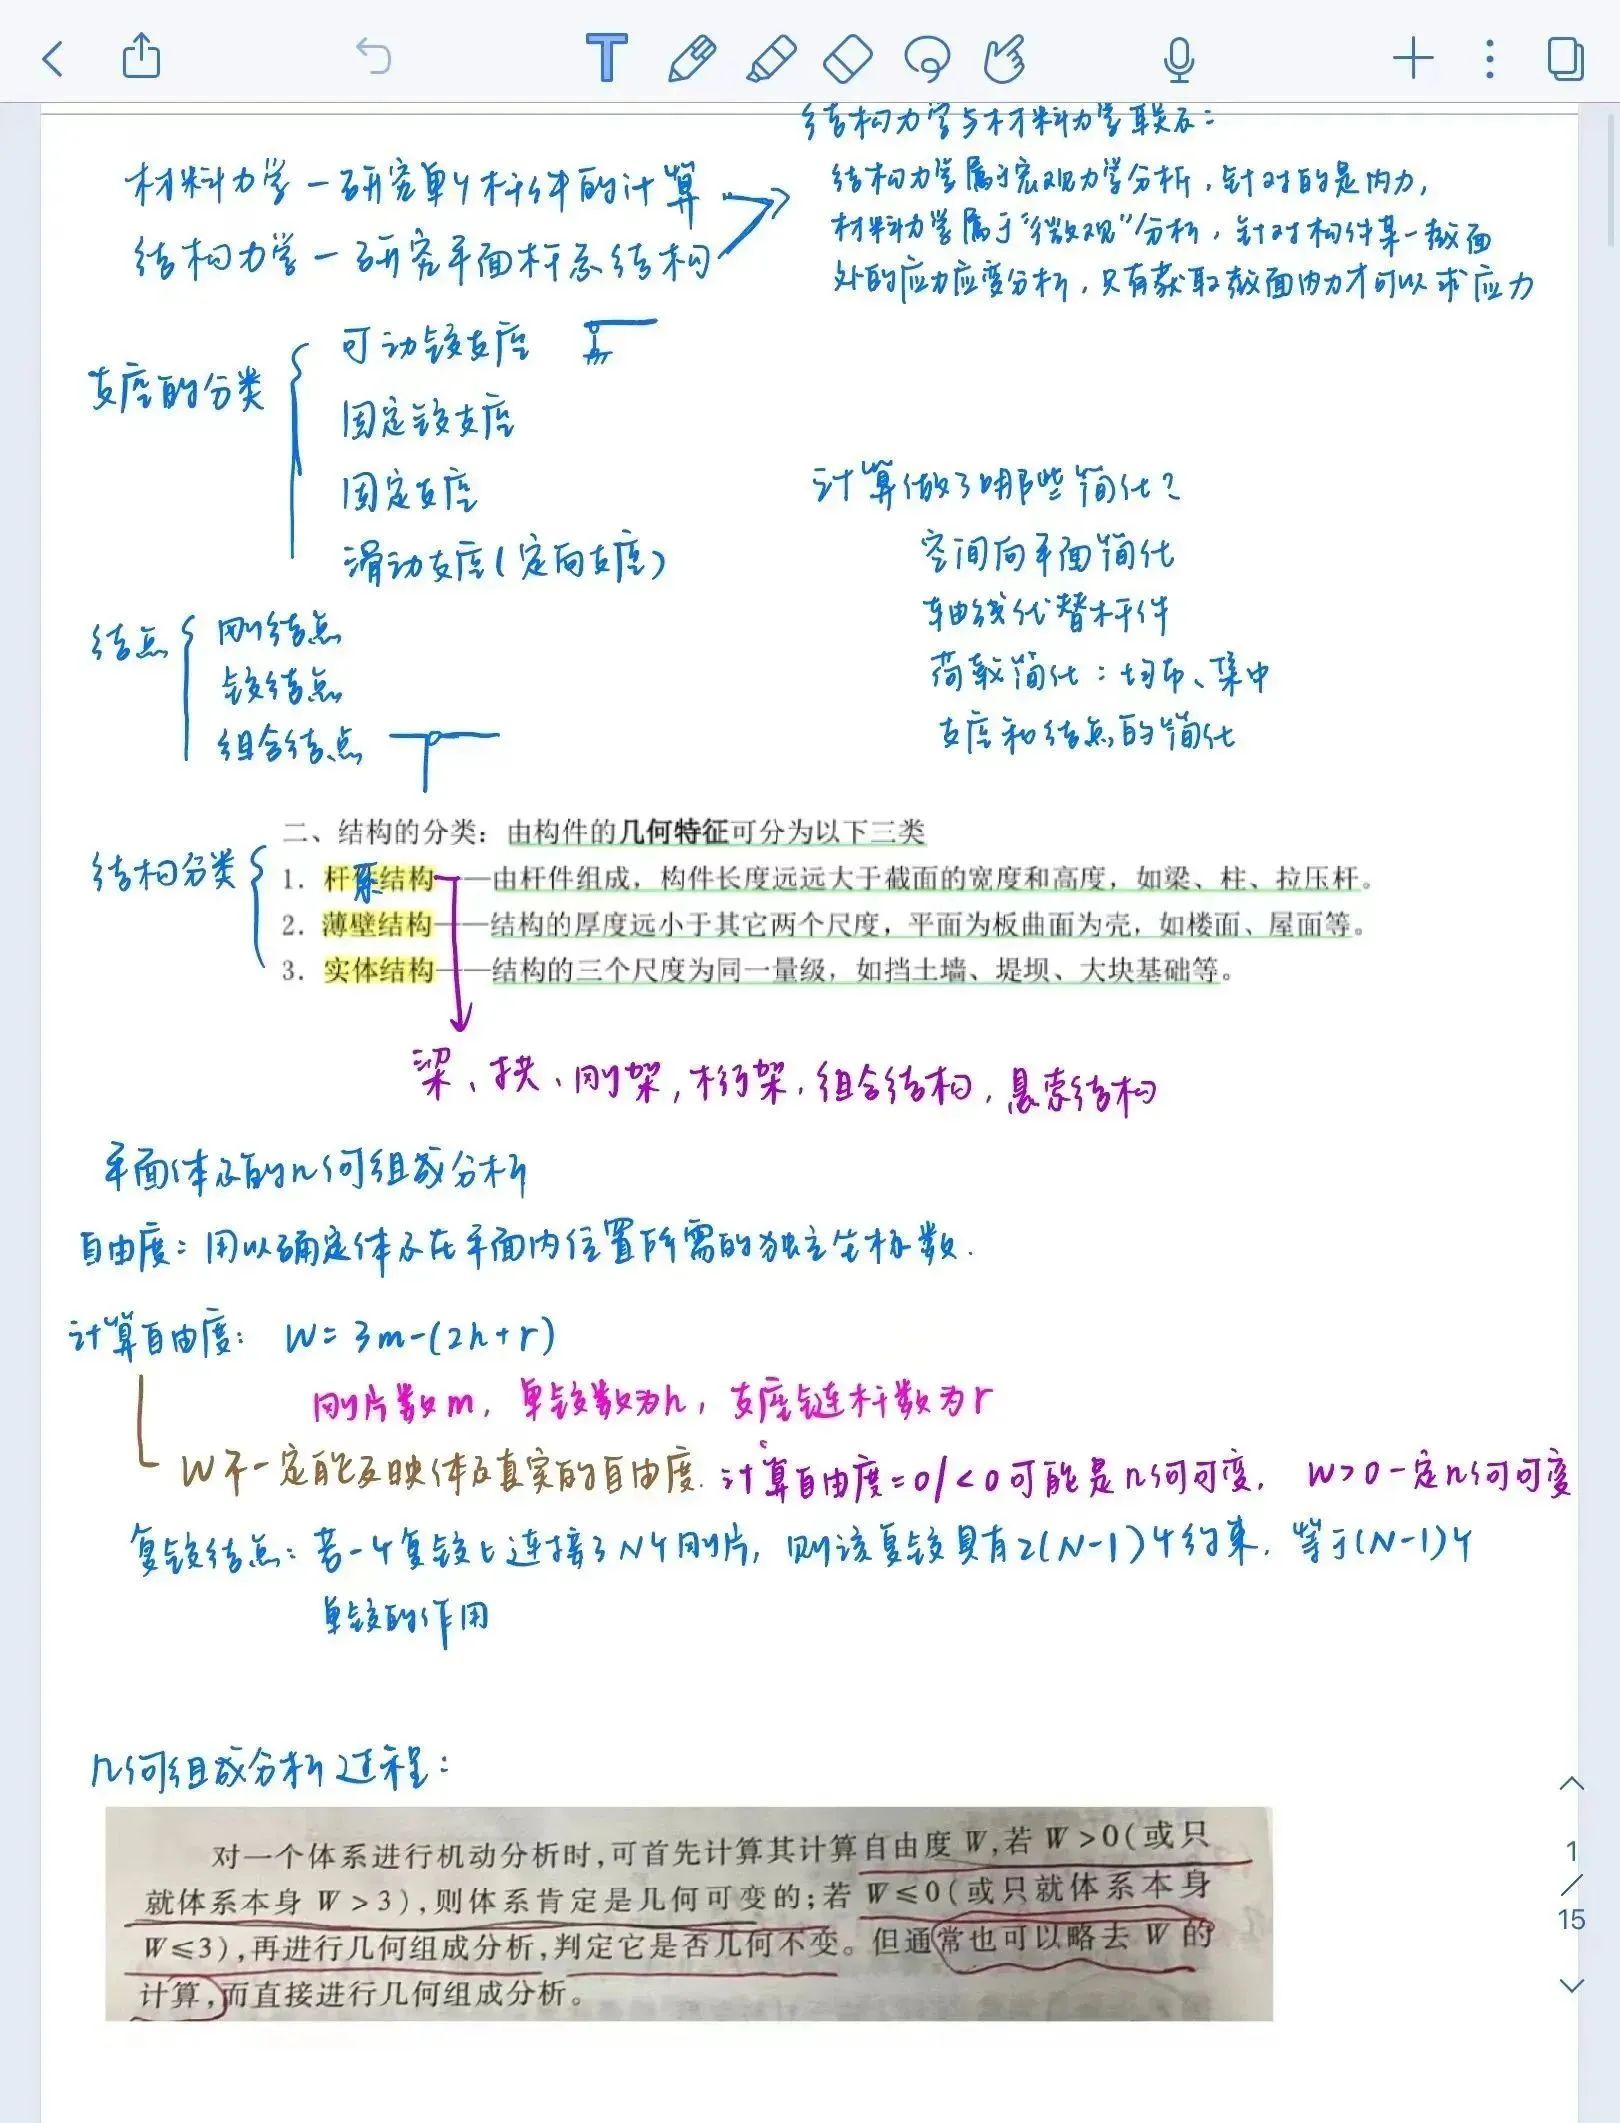 结构力学与材料力学联系：
材料力学－研究单个杆件的计算
结构力学－研究平面杆系结构
结构力学属于宏观力学分析，针对的是内力，
材料力学属于“微观”分析，针对构件某一截面
处的应力应变分析，只有获取截面内力才可以求应力
支座的分类
可动铰支座
固定铰支座
固定支座
滑动支座（定向支座）
计算做了哪些简化？
空间向平面简化
轴线代替杆件
荷载简化：均布、集中
支座和结点的简化
结点
刚结点
铰结点
组合结点
结构分类
二、结构的分类：由构件的几何特征可分为以下三类
1. 杆系结构——由杆件组成，构件长度远远大于截面的宽度和高度，如梁、柱、拉压杆。
2. 薄壁结构——结构的厚度远小于其它两个尺度，平面为板曲面为壳，如楼面、屋面等。
3. 实体结构——结构的三个尺度为同一量级，如挡土墙、堤坝、大块基础等。
梁、拱、刚架，桁架，组合结构，悬索结构
平面体系的几何组成分析
自由度：用以确定体系在平面内位置所需的独立坐标数．
计算自由度： W=3m-(2h+r)
刚片数m，单铰数为h，支座链杆数为r
W不一定能反映体系真实的自由度．计算自由度=0/<0可能是几何可变． W>0一定几何可变
复铰结点：若一个复铰上连接了N个刚片，则该复铰具有2(N-1)个约束．等于(N-1)个
单铰的作用
几何组成分析过程：
对一个体系进行机动分析时，可首先计算其计算自由度 W，若 W>0（或只
就体系本身 W>3），则体系肯定是几何可变的；若 W≤0（或只就体系本身
W≤3），再进行几何组成分析，判定它是否几何不变。但通常也可以略去 W 的
计算，而直接进行几何组成分析。
1
/
15